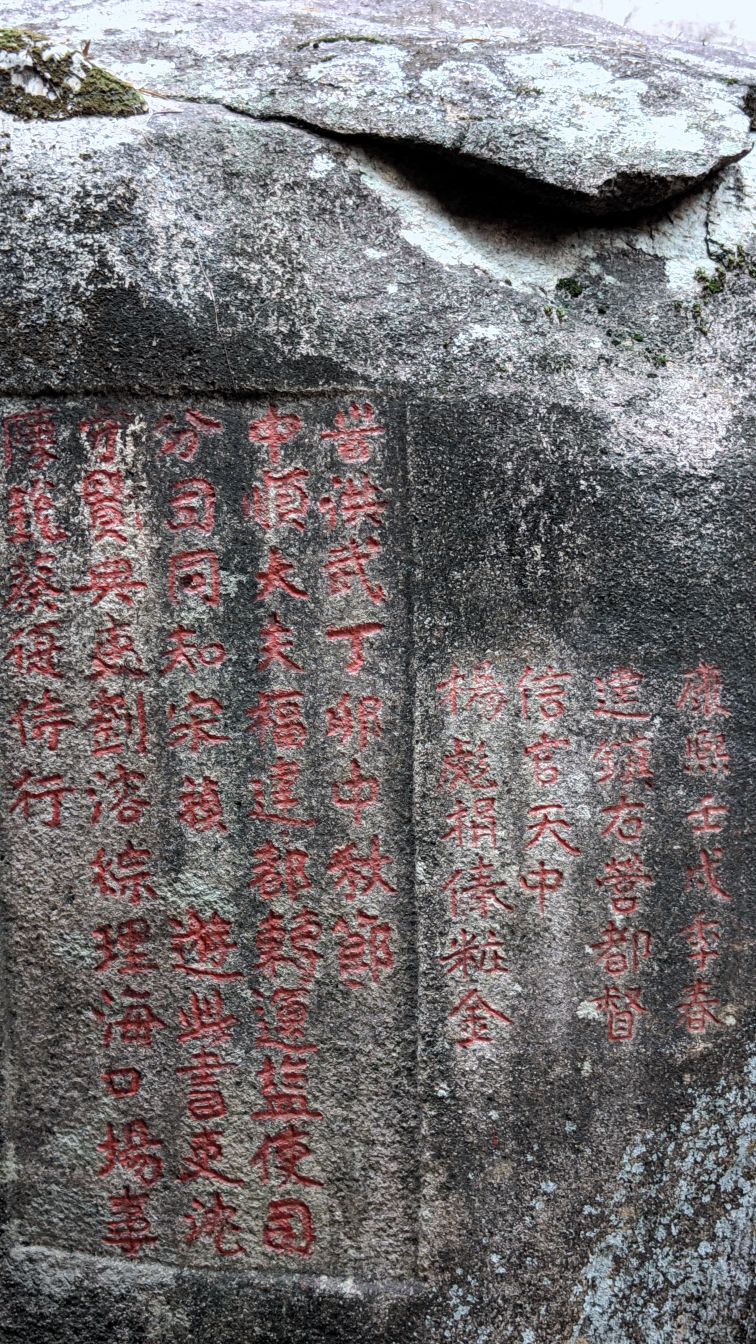 康熙壬戌季春
建鎮右營都督
信官天中
楊彪捐俸粧金
洪武丁卯中秋節
中順大夫福建都轉運盐使司
分司同知宋 遊此書吏沈
守賢典吏劉溶綜理海口塲事
陳 蔡德侍行